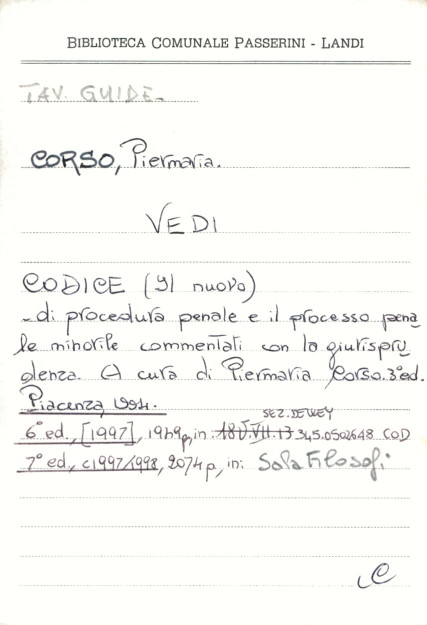 BIBLIOTECA COMUNALE PASSERINI - LANDI
TAV. GUIDE.
CORSO, Piermaria.
VEDI
CODICE (Il nuovo)
- di procedura penale e il processo pena
le minorile commentati con la giurispru
denza. A cura di Piermaria Corso. 3ª ed.
Piacenza,
SEZ. DEWEY
6ª ed., [1997], 1949p, in: 18V.VII.13 345.0502648 COD
7ª ed., c1997/1998, 2074 p, in: Sala Filosofi
C